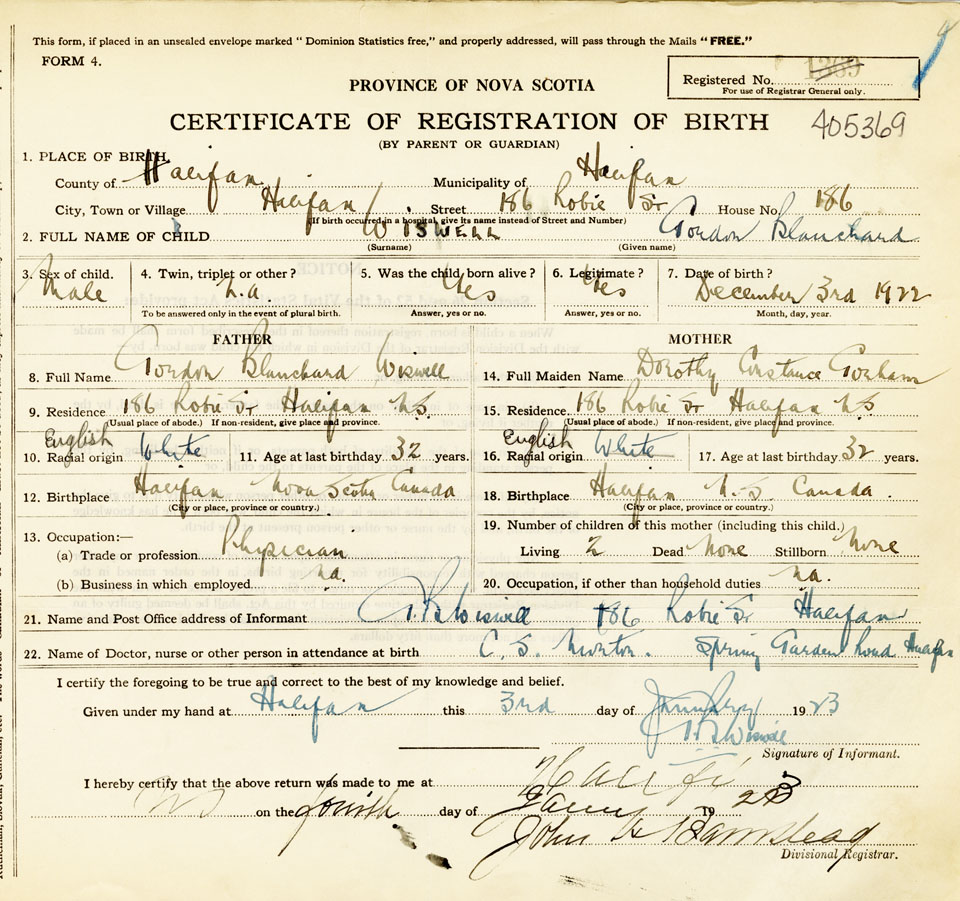 This form, if placed in an unsealed envelope marked "Dominion Statistics free," and properly addressed, will pass through the Mails "FREE."
FORM 4.
PROVINCE OF NOVA SCOTIA
Registered No. 1369
For use of Registrar General only.
CERTIFICATE OF REGISTRATION OF BIRTH 405369
(BY PARENT OR GUARDIAN)
1. PLACE OF BIRTH
County of Halifax Municipality of Halifax
City, Town or Village Halifax Street 186 Robie St House No. 186
(If birth occurred in a hospital, give its name instead of Street and Number)
2. FULL NAME OF CHILD WISWELL Gordon Blanchard
(Surname) (Given name)
3. Sex of child. 4. Twin, triplet or other? 5. Was the child born alive? 6. Legitimate? 7. Date of birth?
Male n.a. Yes Yes December 3rd 1922
To be answered only in the event of plural birth. Answer, yes or no. Answer, yes or no. Month, day, year.
FATHER MOTHER
8. Full Name Gordon Blanchard Wiswell 14. Full Maiden Name Dorothy Constance Gorham
9. Residence 186 Robie St Halifax NS. 15. Residence 186 Robie St Halifax NS
(Usual place of abode.) If non-resident, give place and province. (Usual place of abode.) If non-resident, give place and province.
English English
10. Racial origin White 11. Age at last birthday 32 years. 16. Racial origin White 17. Age at last birthday 32 years.
12. Birthplace Halifax Nova Scotia Canada 18. Birthplace Halifax N.S. Canada.
(City or place, province or country.) (City or place, province or country.)
13. Occupation:— 19. Number of children of this mother (including this child.)
(a) Trade or profession Physician Living 2 Dead None Stillborn None
(b) Business in which employed na. 20. Occupation, if other than household duties na.
21. Name and Post Office address of Informant Wiswell 186 Robie St Halifax
22. Name of Doctor, nurse or other person in attendance at birth C. S. Morton. Spring Garden Road Halifax
I certify the foregoing to be true and correct to the best of my knowledge and belief.
Given under my hand at Halifax this 3rd day of January 1923
Wiswell
Signature of Informant.
I hereby certify that the above return was made to me at Halifax
NS on the fourth day of Jany 1923
John H Barnstead
Divisional Registrar.